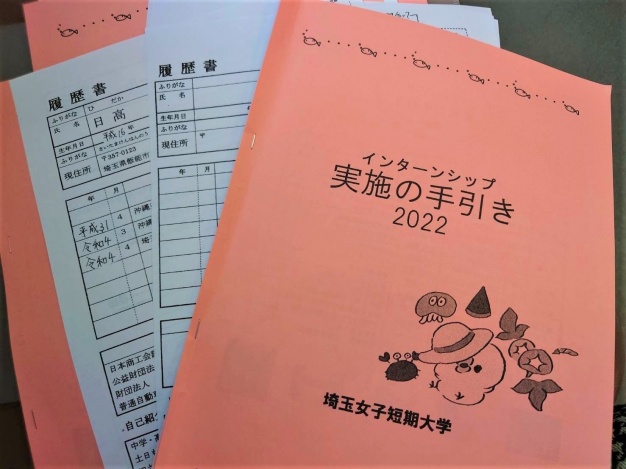 インターンシップ
実施の手引き
2022
埼玉女子短期大学
履歴書
ふりがな ひ だか
氏 名 日高
生年月日 平成16年
ふりがな さいたまけんはんのう
現住所 〒357-0123
埼玉県飯能市
年 月
平成31 4 沖縄
令和4 3 沖縄
令和4 4 埼
日本商工会
公益財団法
財団法人
普通自動
自己紹
中学・高
土日も
履歴書
ふりがな
氏 名
生年月日
ふりがな
現住所 〒
年 月